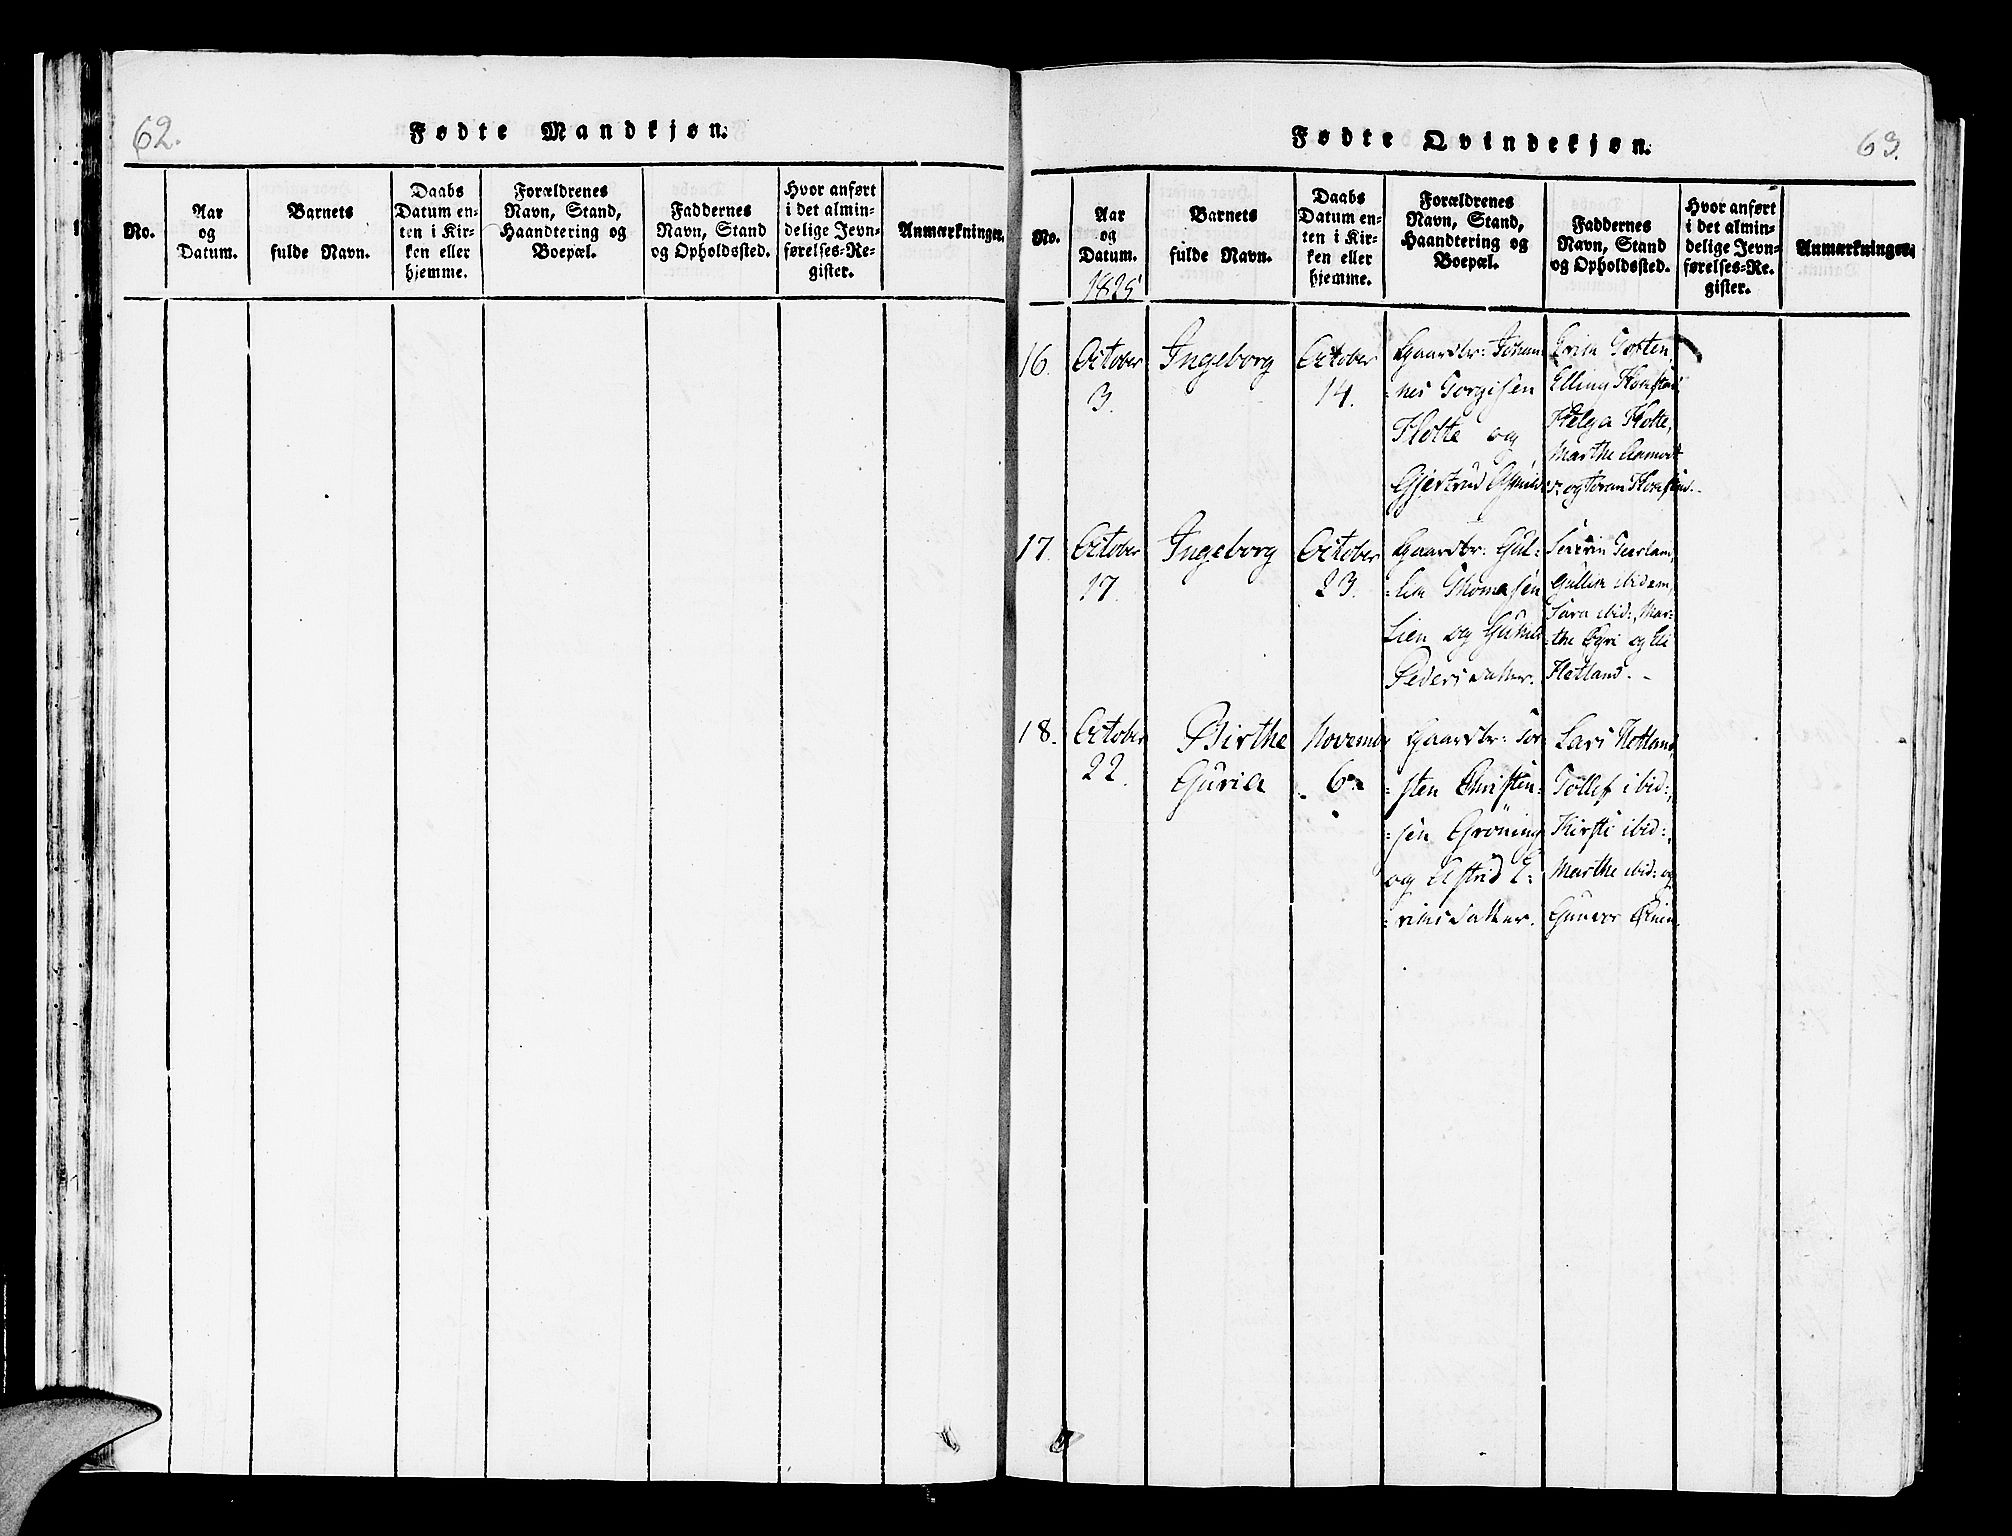 62.
Fødte Mandkjøn.
No.
Aar
og
Datum.
Barnets
fulde Navn.
Daabs
Datum en-
ten i Kir-
ken eller
hjemme.
Forældrenes
Navn, Stand,
Haandtering og
Boepæl.
Faddernes
Navn, Stand
og Opholdssted.
Hvor anført
i det almin-
delige Jevn-
førelses-Re-
gister.
Anmærkninger.
Fødte Qvindekjøn.
63.
No.
Aar
og
Datum.
1825
Barnets
fulde Navn.
Daabs
Datum en-
ten i Kir-
ken eller
hjemme.
Forældrenes
Navn, Stand,
Haandtering og
Boepæl.
Faddernes
Navn, Stand
og Opholdssted.
Hvor anført
i det almin-
delige Jevn-
førelses-Re-
gister.
Anmærkninger.
16.
October
3.
Ingeborg
October
14.
Gaardbr: Johan-
=nes Torgisen
og
Gjertrud
Elling
Helga
Marthe
og
17.
October
17.
Ingeborg
October
23.
Gaardbr: Gul=
=lik Thomasen
Lien og
Peders datter.
Gullik ibidem,
Sara ibid:, Mar=
=the Øyri og Eli
Hetland. -
18.
October
22.
Birthe
Guria
Novembr
6te
Gaardbr: Tor=
=sten Christen=
=sen Grøning
og Astrid E=
=riksdatter.
Lars Hetland,
Tollef ibid:,
Kirsti ibid:,
Marthe ibid: og
Gunvor